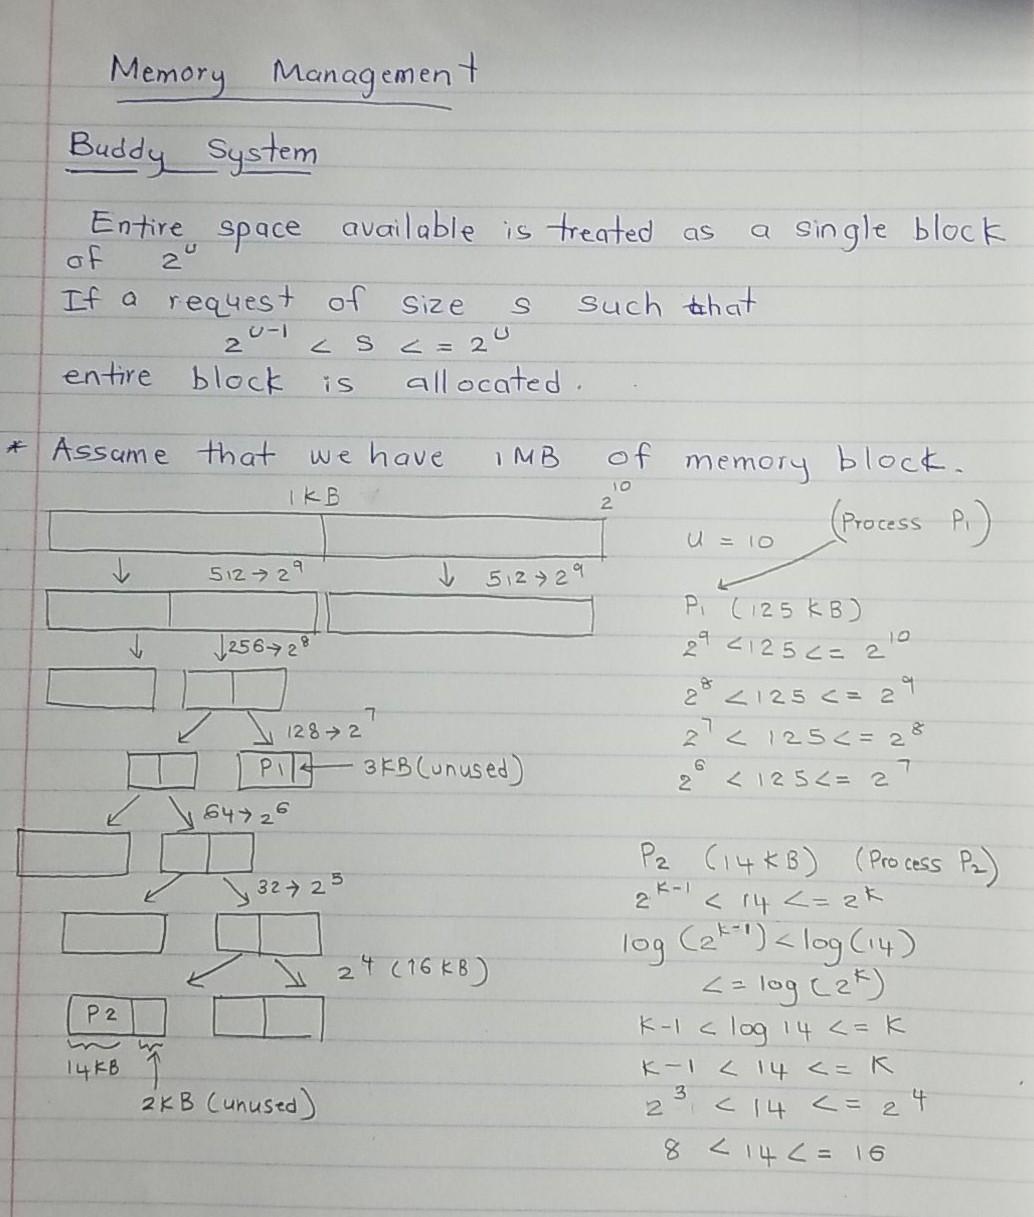 Memory Management
Buddy System
Entire space available is treated as a single block
of 2^U
If a request of size s such that
2^U-1 < S <= 2^U
entire block is allocated.
* Assume that we have 1MB of memory block.
1KB 2^10
U = 10 (Process P1)
512→2^9 512→2^9
P1 (125 KB)
256→2^8
2^9 <125<= 2^10
2^8 <125 <= 2^9
128→2^7
2^7 < 125<= 2^8
P1 3KB (unused)
2^6 < 125<= 2^7
64→2^6
P2 (14KB) (Process P2)
32→2^5
2^K-1 < 14 <= 2^K
log (2^K-1) < log(14)
2^4 (16 KB)
<= log (2^K)
P2
K-1 < log 14 <= K
14KB
K-1 < 14 <= K
2KB (unused)
2^3 < 14 <= 2^4
8 < 14 <= 16